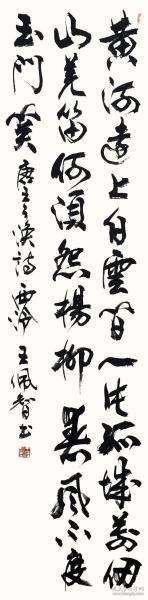 黃河遠上白雲間一片孤城萬仞
山羌笛何須怨楊柳春風不度
玉門關 唐王之渙詩 西泠 王佩智书